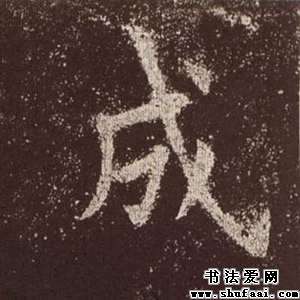 成
书法爱网
www.shufaai.com